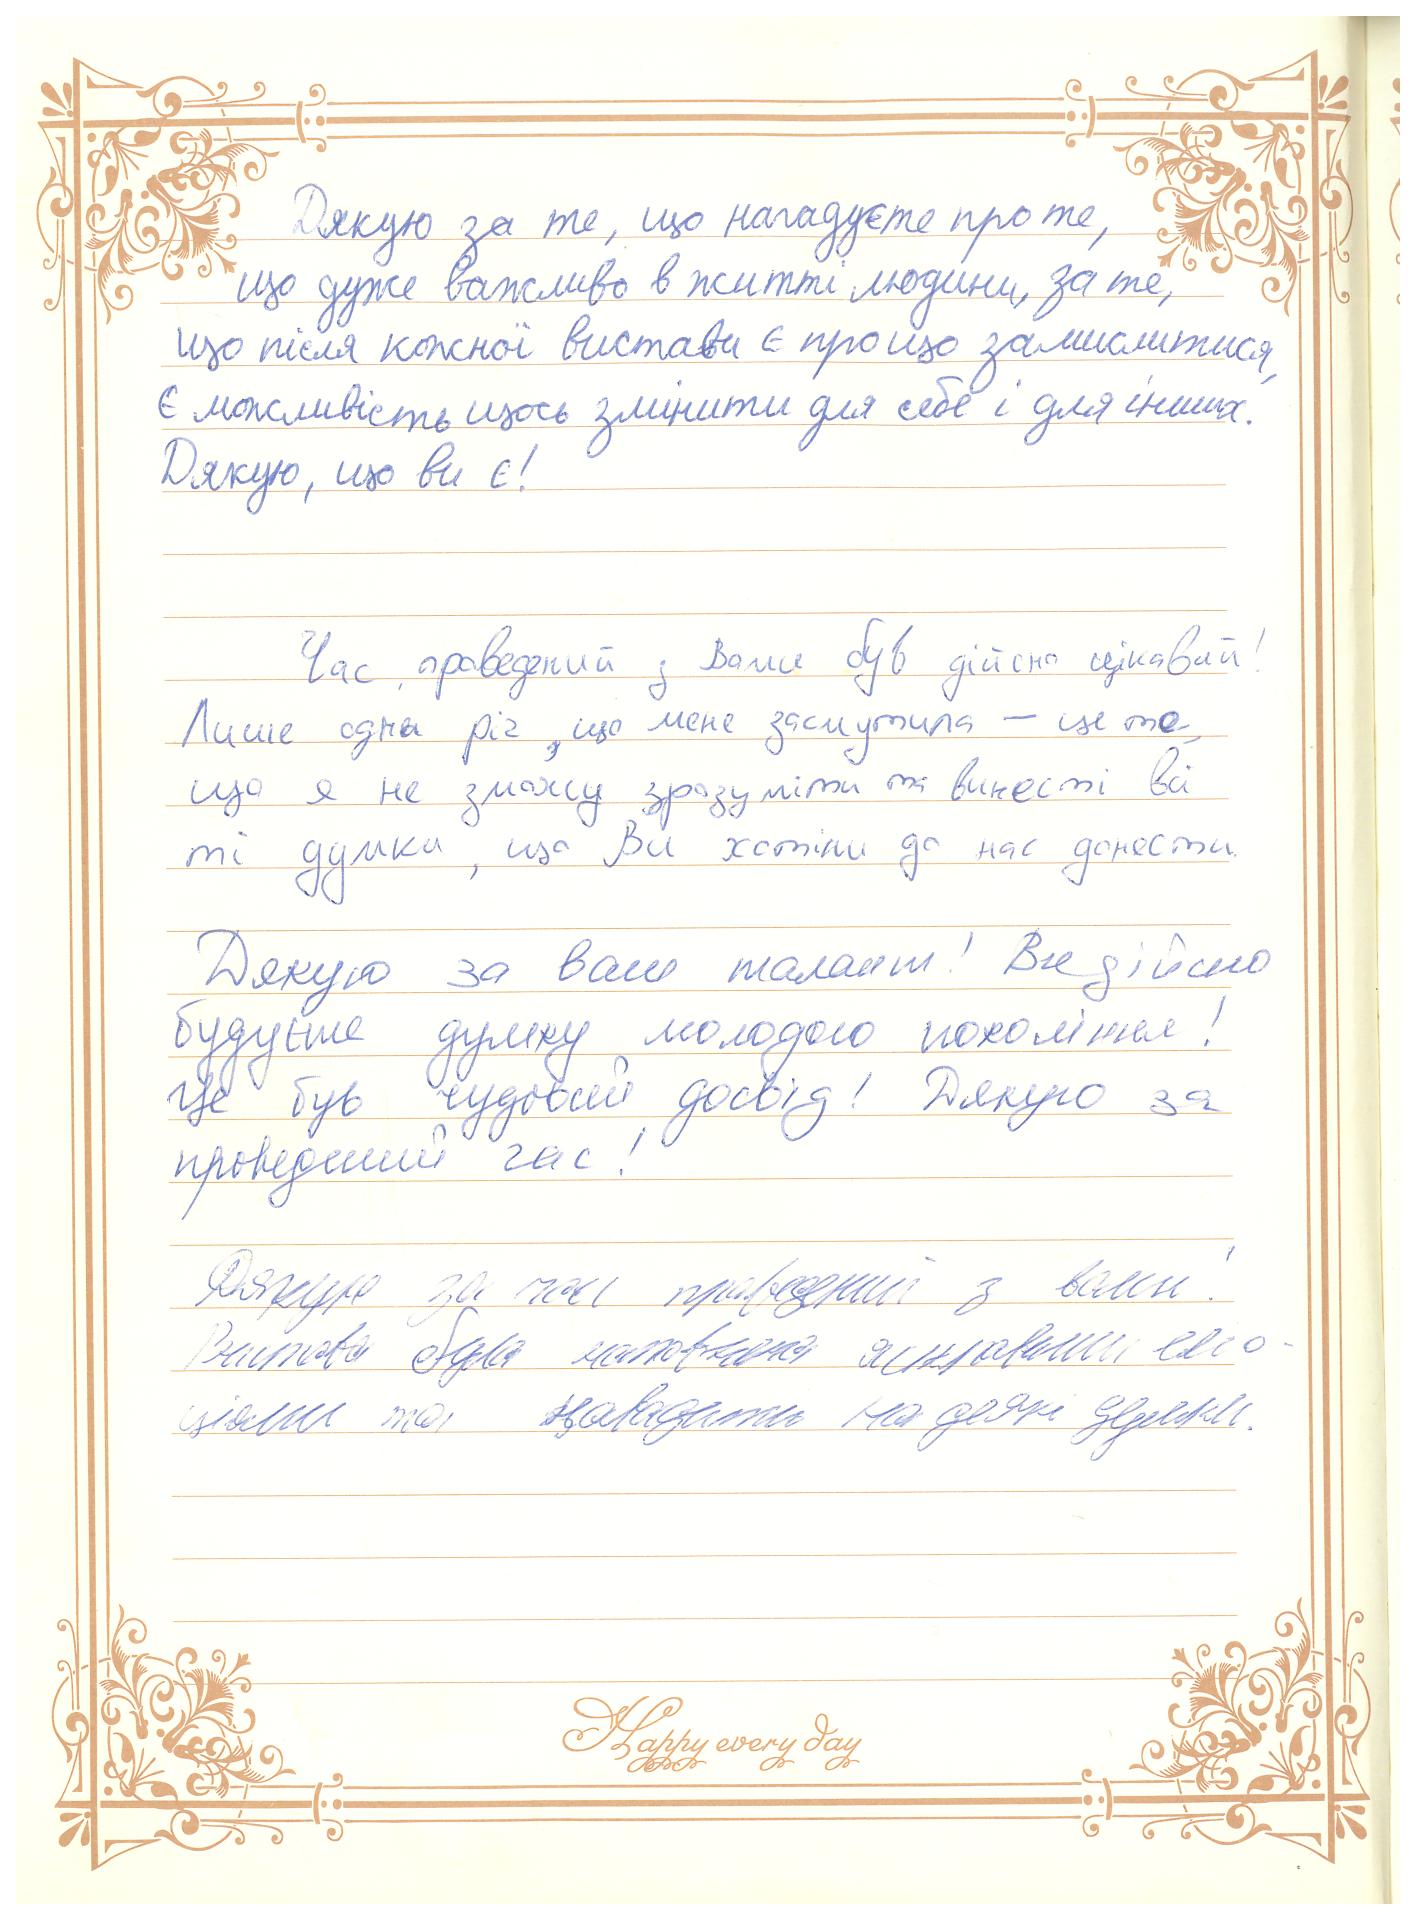 Дякую за те, що нагадуєте про те,
що дуже важливо в житті людини, за те,
що після кожної вистави є про що замислитися,
є можливість щось змінити для себе і для інших.
Дякую, що ви є!
Час, проведений з Вами був дійсно цікавий!
Лише одна річ, що мене засмутила — це те,
що я не зможу зрозуміти та винести всі
ті думки, що Ви хотіли до нас донести.
Дякую за ваш талант! Ви дійсно
будуєте думку молодого покоління!
Це був чудовий досвід! Дякую за
проведений час!
Дякую за час проведений з вами!
Вистава була наповнена яскравими емо-
ціями та наводить на деякі думки.
Happy every day